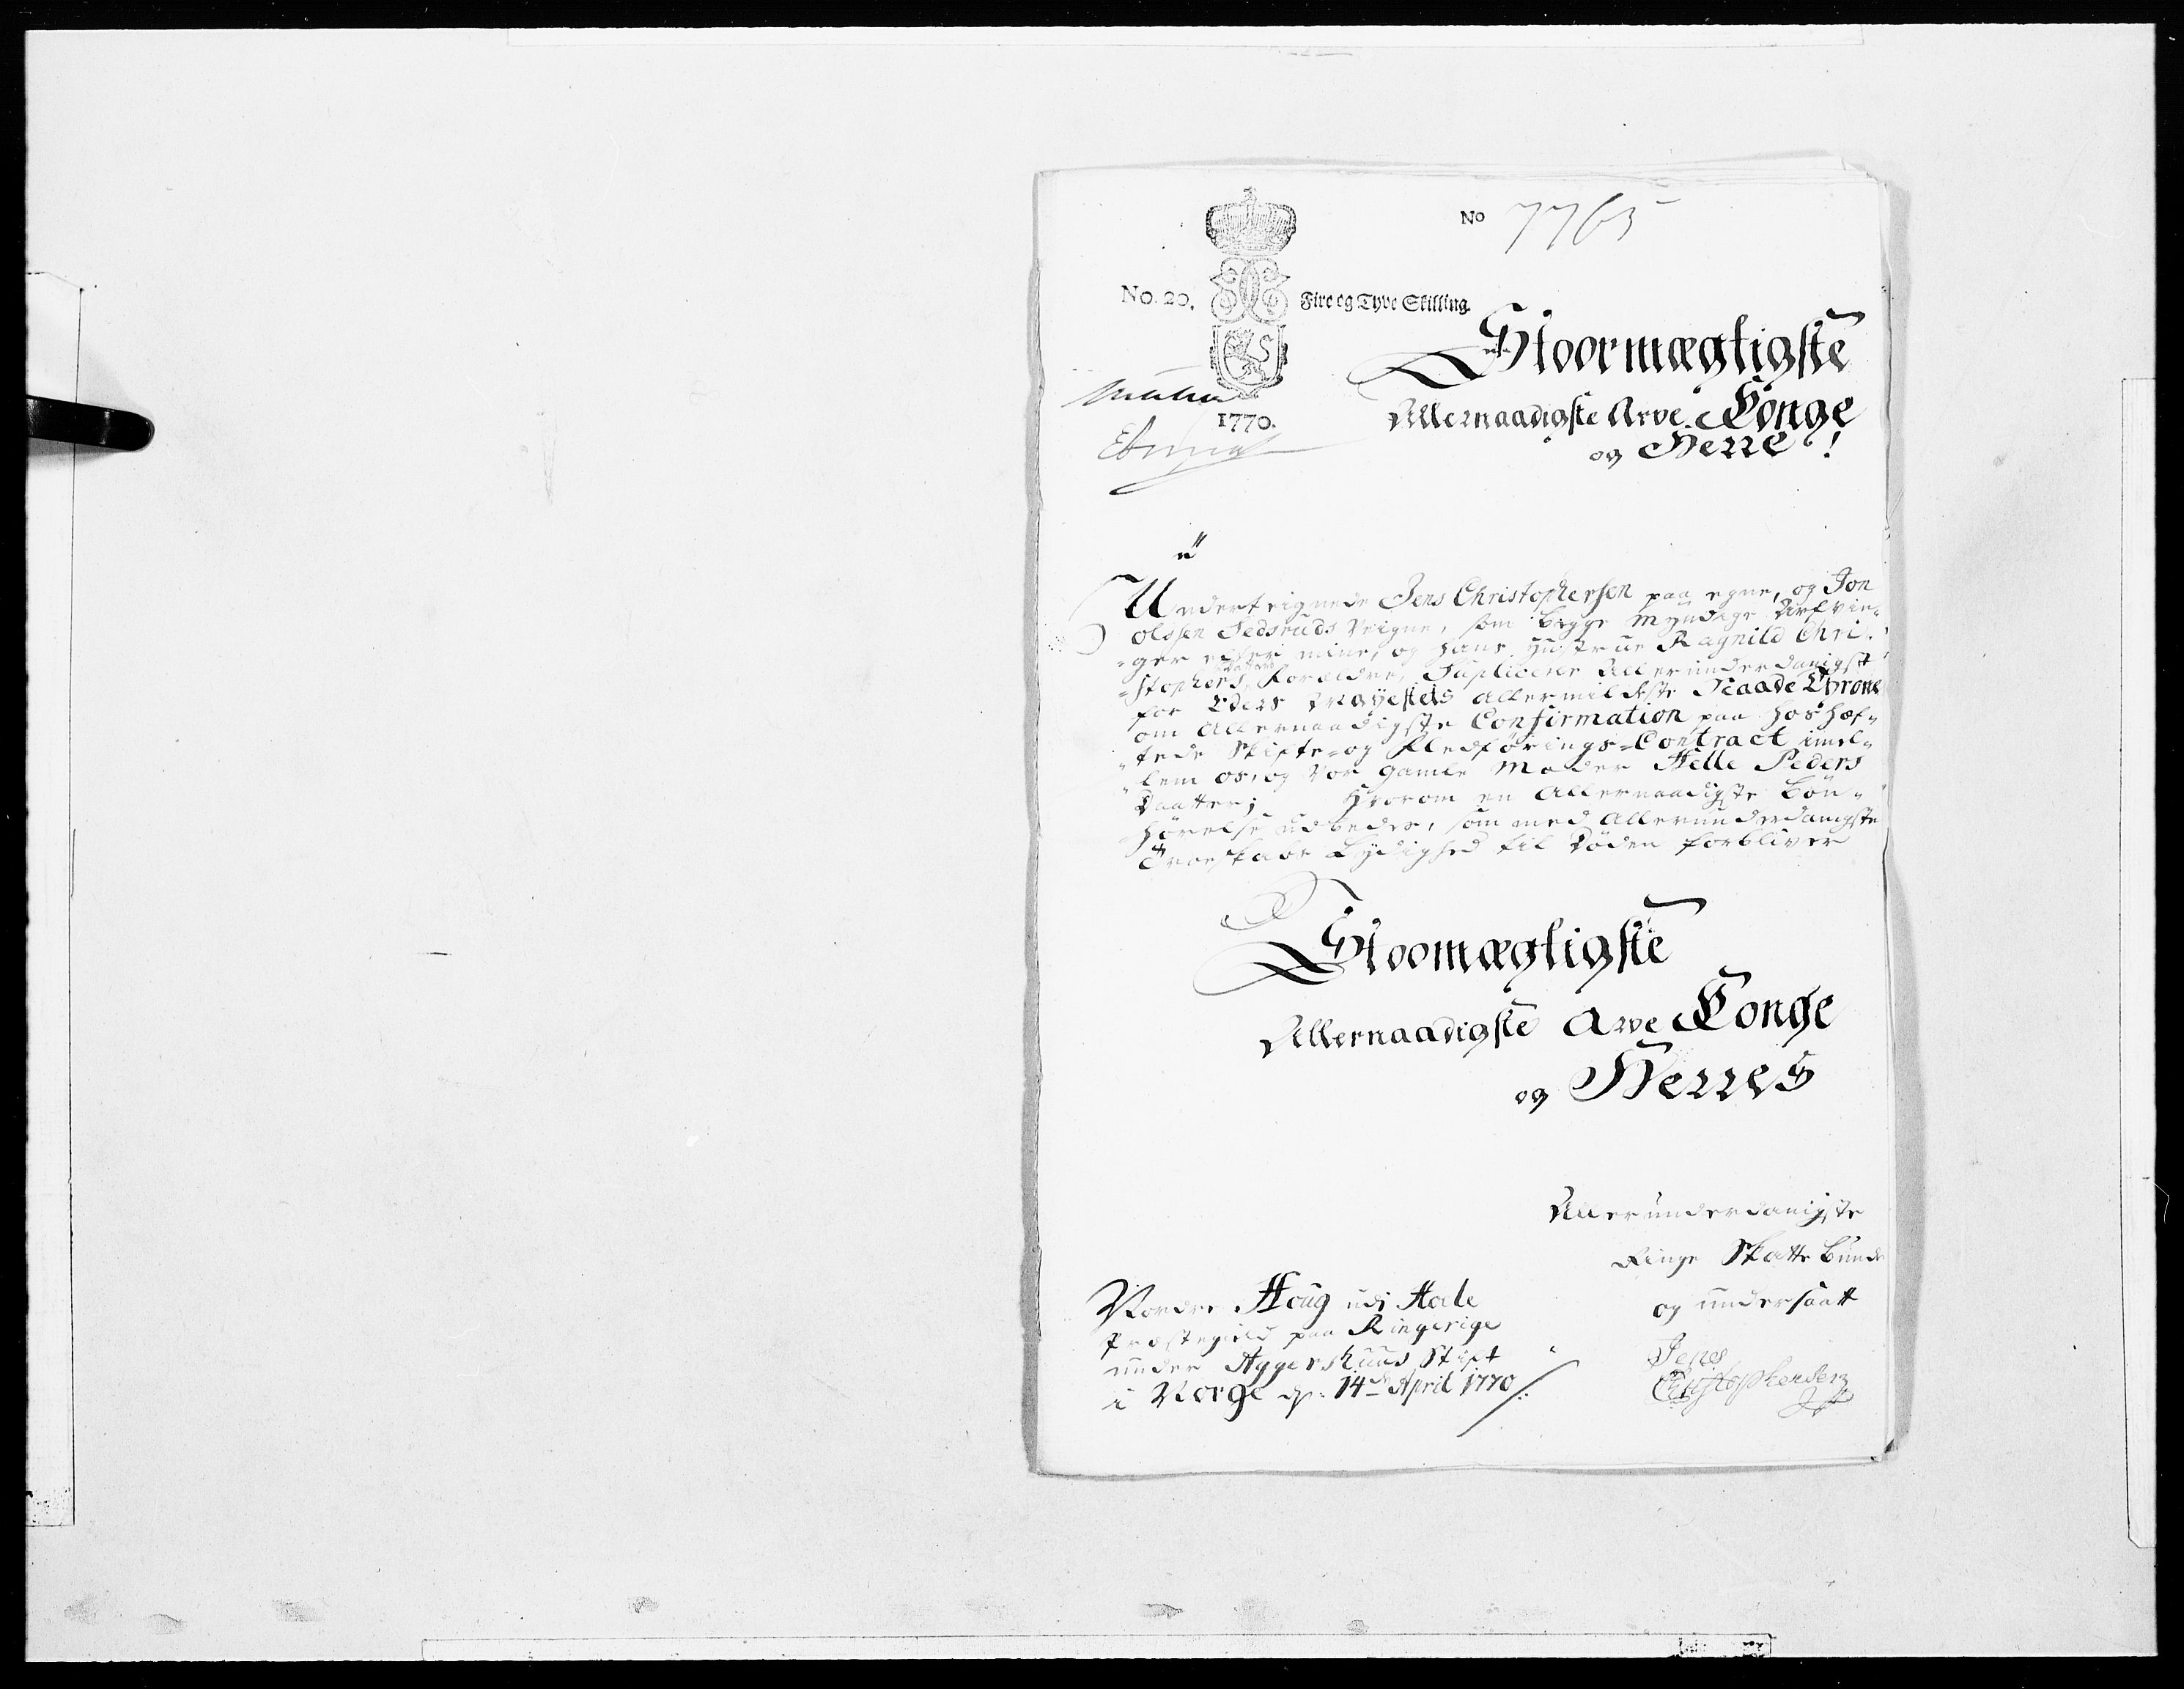 No 7765
No. 20. Fire og Tyve Skilling.
1770.
Stoormægtigste
Allernaadigste Arve Konge
og Herre!
Underteignede Jens Christophersen paa egne, og Jon
Olssen Sedsruds Veigne, som begge Myndige Arfvin-
-ger efter mine, og hans Hustrue Ragnild Chri-
-stophers Daatters Forældre, Suplicerer Allerunderdanigst
for Eders Mayestets allermildeste Naade Throne
om Allernaadigste Confirmation paa hoshæf-
-tede Skifte- og Fledførings-Contract imel-
-lem os, og Vor gamle Moder Helle Peders
Daatter; Hvorom en Allernaadigste Bøn-
hørelse udbedes, som med Allerunderdanigste
Troeskabs Lydighed til Døden forbliver
Stoomægtigste
Allernaadigste Arve Konge
og Herres
Allerunderdanigste
Ringe Skatte Bunde
og undersaatt
Jens
Christophersen
Nordre Houg udi Hole
Præstegield paa Ringerige
under Aggershuus Stift
i Norge d: 14de April 1770